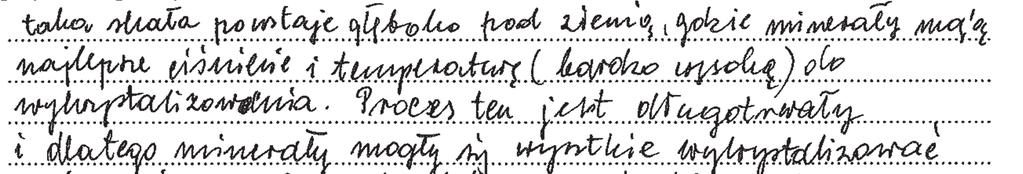 taka skała powstaje głęboko pod ziemią, gdzie minerały mają
najlepsze ciśnienie i temperaturę (bardzo wysoką) do
wykrystalizowania. Proces ten jest długotrwały
i dlatego minerały mogły się wszystkie wykrystalizować